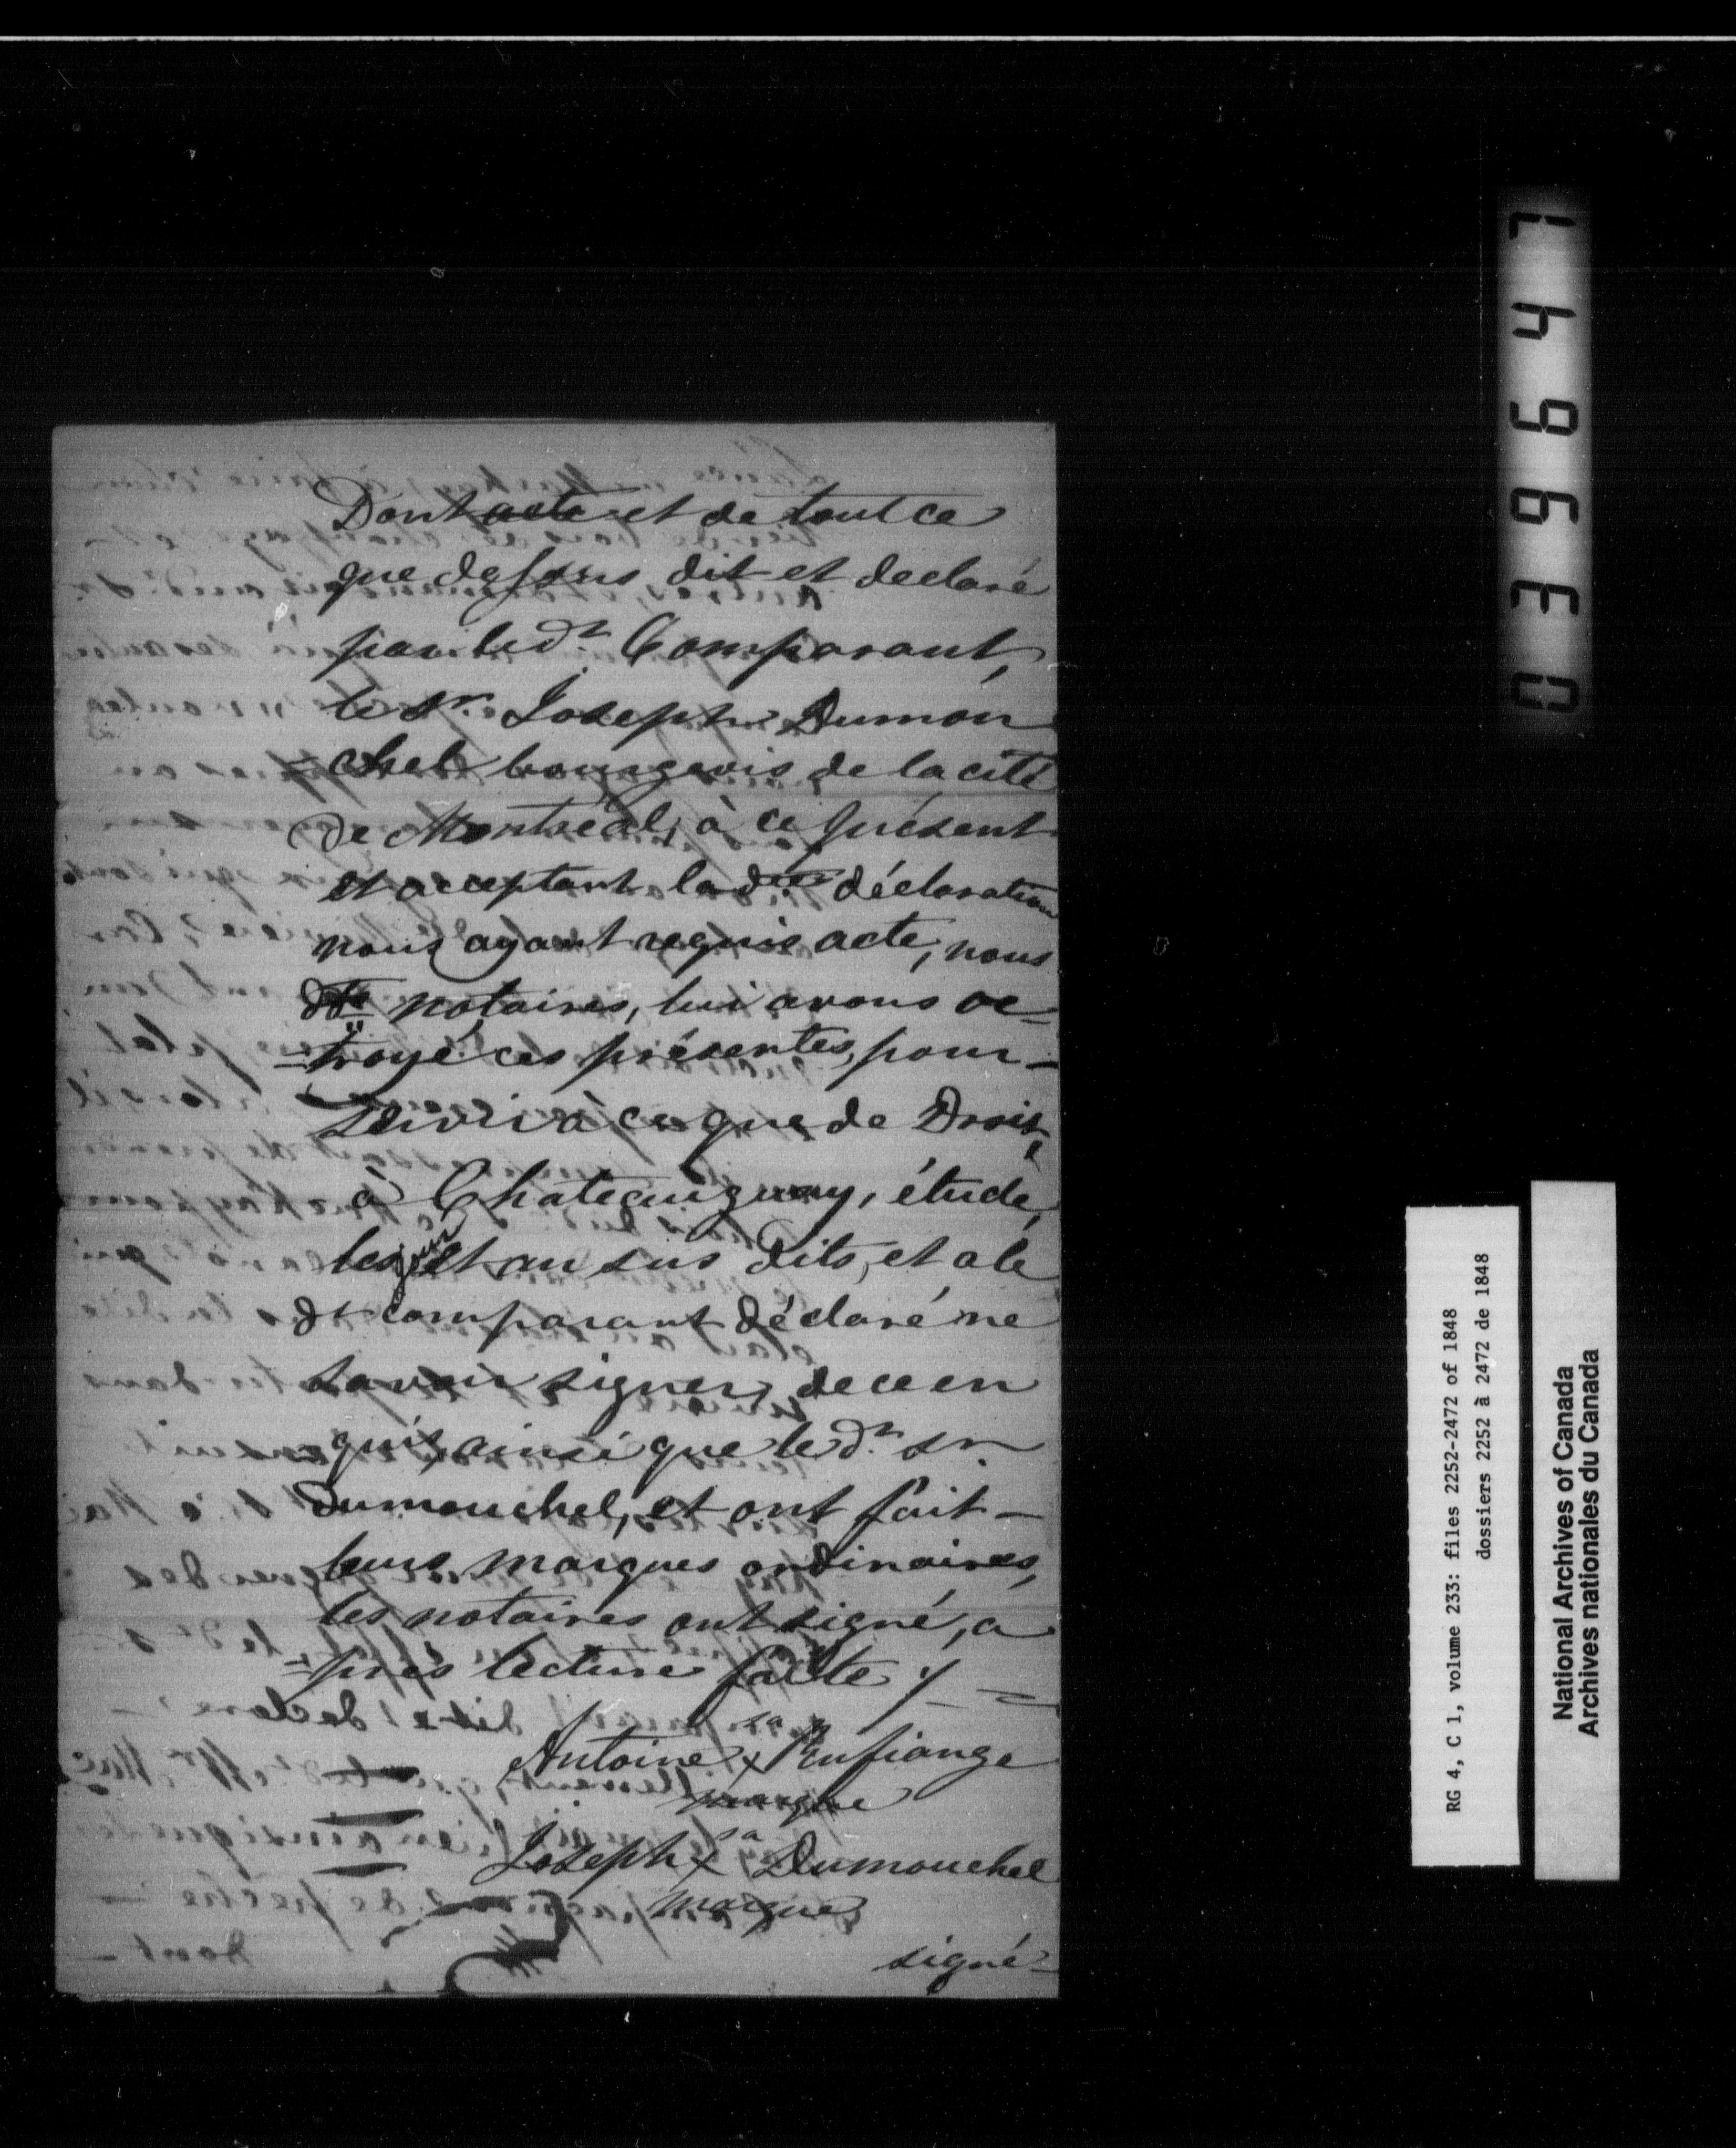 Dont acte et de tout ce
que dessus dit et declaré
par le dt. Comparant,
le Sr. Joseph Dumou
=chel bourgeois de la cité
de Montréal, à ce présent
et acceptant la dte déclaration
nous ayant requis acte, nous
dts notaires, lui avons oc=
=troyé ces présentes, pour
servir à ce que de Droit,
à Chateauguay, étude,
les jour et an sus dits, et a le
dt comparant déclaré ne
savoir signer, de ce en
quis, ainsi que le dt. Sr.
Dumouchel, et ont fait
leurs marques ordinaires,
les notaires ont signé, a
=près lecture faite ./.
sa
Antoine x Rufiange
marque
sa
Joseph x Dumouchel
marque
signé
039647
RG 4, C 1, volume 233: files 2252-2472 of 1848
dossiers 2252 à 2472 de 1848
National Archives of Canada
Archives nationales du Canada